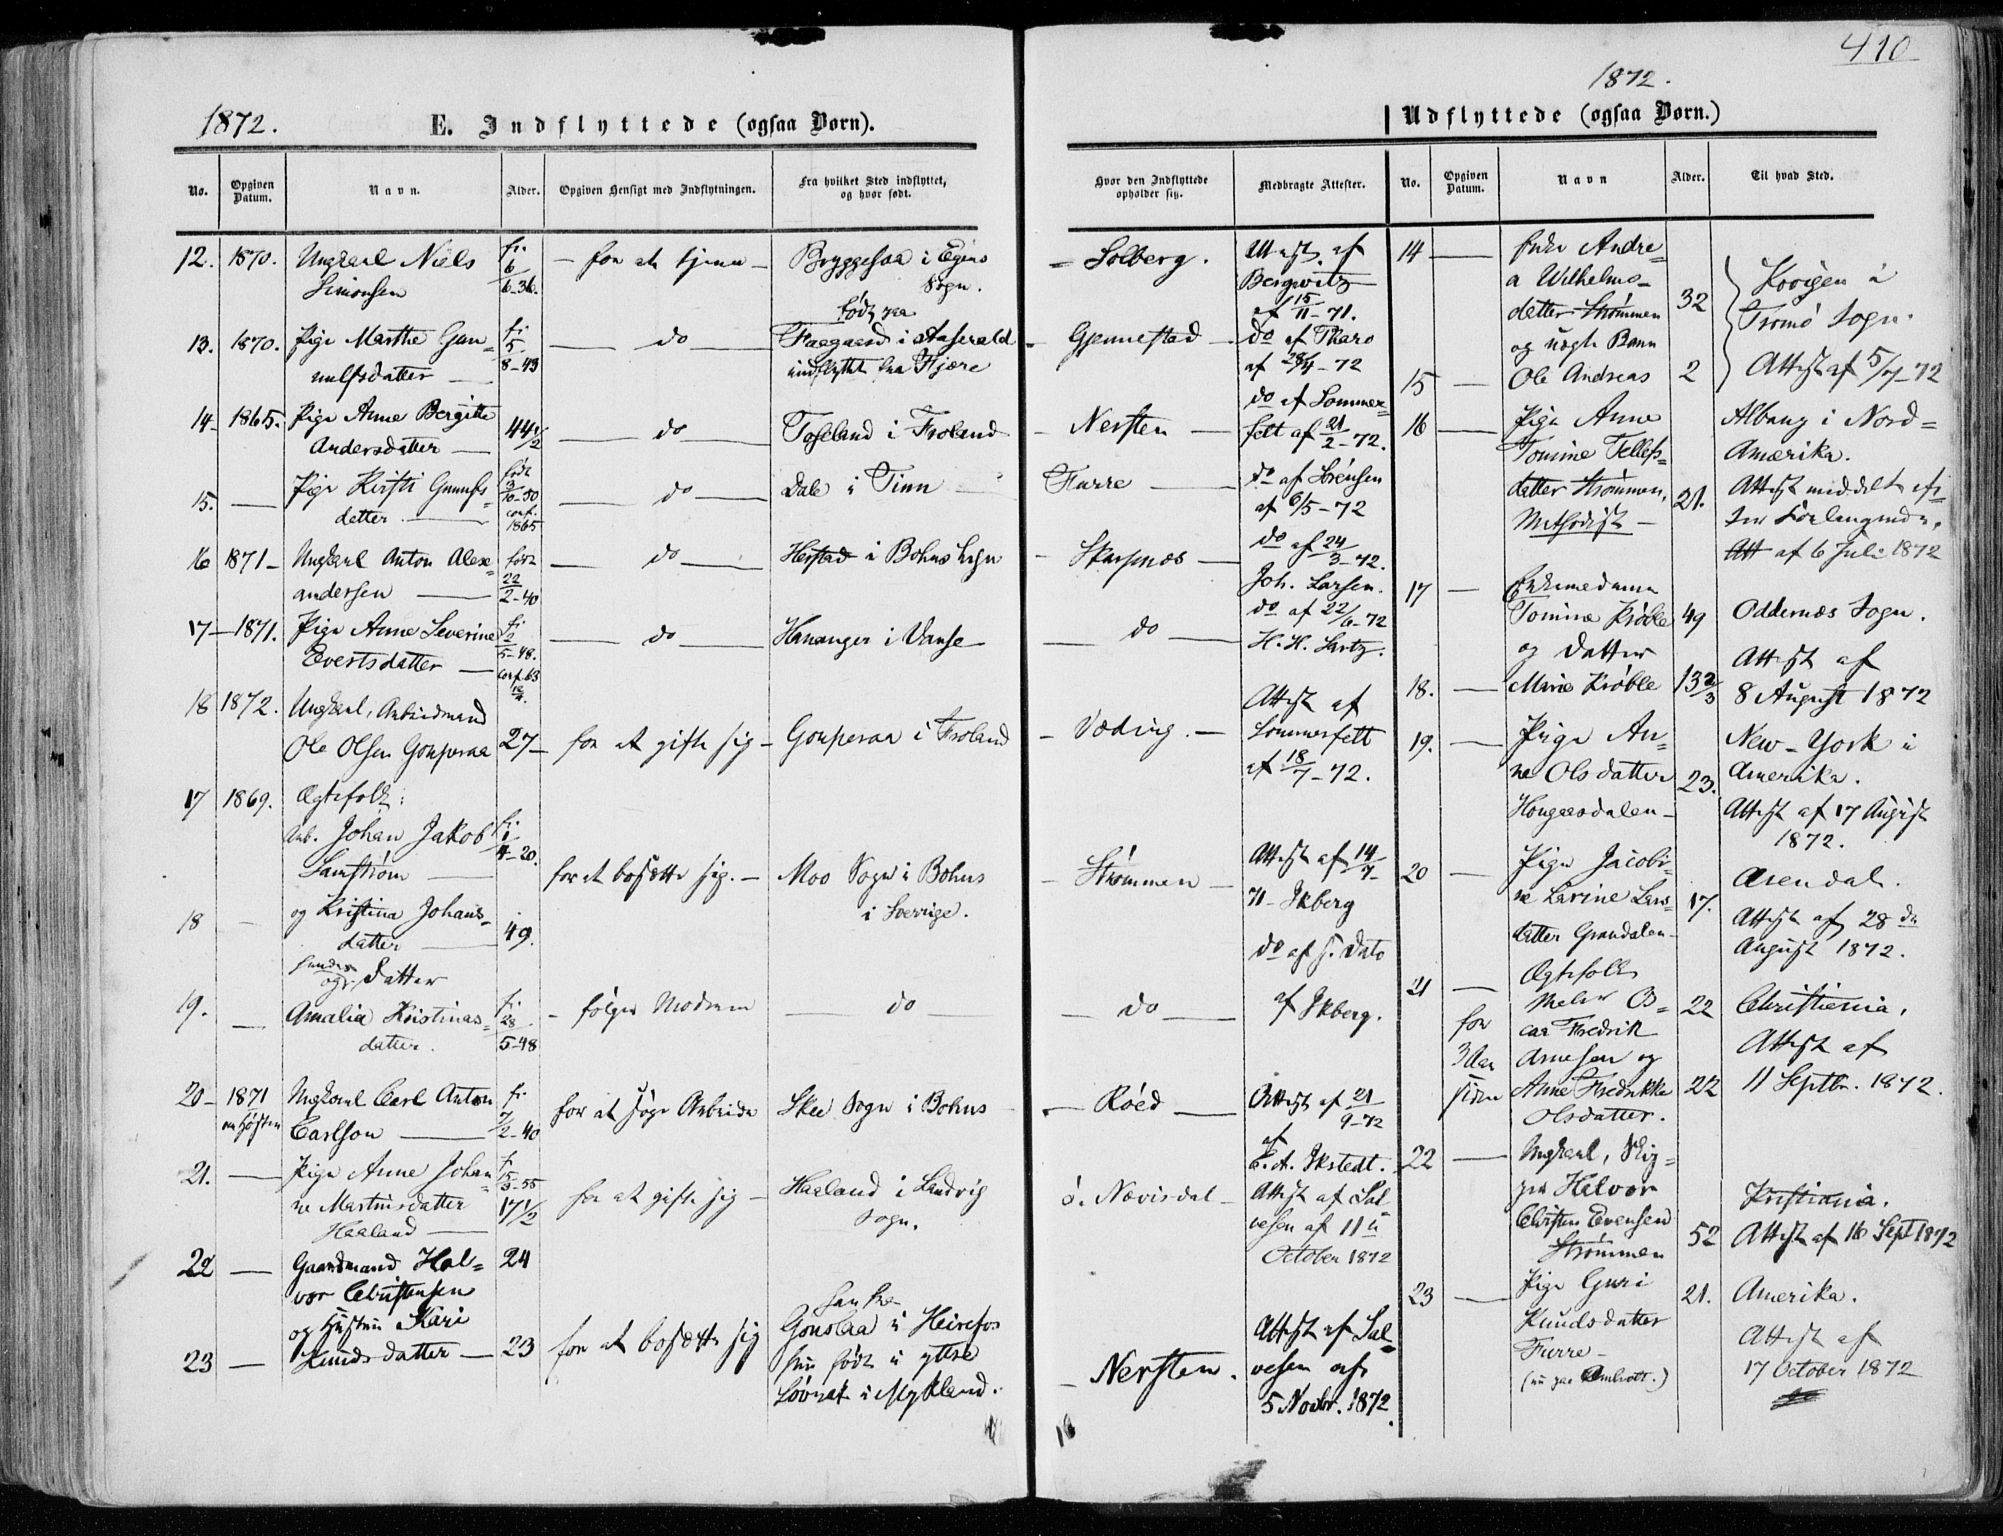 410
1872.
E. Indflyttede (ogsaa Børn).
No.
Opgiven Datum.
Navn.
Alder.
Opgiven Hensigt med Indflytningen.
Fra hvilket Sted indflyttet, og hvor født.
Hvor den Indflyttede opholder sig.
Medbragte Attester.
12. 1870. Ungkarl Niels f. 6/6-36. – for at tjene – Bryggesaa i Egens – Solberg. Attest af
Simonsen Sogn. Bergwitz
af 15/11-71.
født paa
13. 1870. Pige Marthe Gun= f. 5/8-43 do Faagaard i Aaserald – Gjennestad – do af Tharo
nulfsdatter indflyttet fra Hjære af 28/4-72
14– 1865. Pige Anne Bergitte 44 1/2 do Toseland i Froland – Nersten – do af Sommer=
Andersdatter felt af 21/2-72.
15. Pige Kirsti Gunufs= født 3/10-50 do Dale i Tinn Furre do af Sørensen
detter conf. 1865 af 6/5-72
16 1871– Ungkarl Anton Alex= født 22/2-40 do Herstad i Bohus Lehn – Skarpnes – do af 24/3-72.
andersen Joh. Larsen.
17– 1871. Pige Anne Severine f. 2/5-48. do Hananger i Vanse do do af 22/6-72
Evertsdatter conf. 63 H. H. Sartz.
18 1872. Ungkarl, Arbeidmand Attest af
Ole Olsen Gouperaa 27– for at gifte sig – Gouperaa i Froland – Væding. – Sommerfelt
af 18/7-72.
17 1869. Ægtefolk:
Arb. Johan Jakob f. 1/4-20.
Samstrøm for at bosætte sig. – Moo Sogn i Bohus – Strømmen – Attest af 14/7-
18 – og Kristina Johans= 49. i Sverrige. 71 – Ekberg
datter do af s. Dato
hendes
og Datter
19. Amalia Kristinas= f. 28/5-48 – følger Moderen do do af Ekberg.
datter.
20– 1871 Ungkarl Carl Anton f. 7/2-40 for at søge Arbeide Skee Sogn i Bohus – Røed Attest af 21/9-72
om Høsten Carlson af
C. A. Ekstedt.
21. Pige Anne Johan= f. 15/3-55 for at gifte sig – Haaland i Landvig ó. Nævisdal – Attest af Sal=
ne Martinsdatter 17 1/2 Sogn. vesen af 11te
Haaland October 1872
22 Gaardmand Hal= 24
vor Christensen han fra
og Hustru Kari Gouslaa i Heirefos Attest af Sal=
23 Knudsdatter – 23 for at bosætte sig hun født i yttre – Nersten. vesen af
Løvrak i Mykland. 5 Novbr. 1872.
1872.
Udflyttede (ogsaa Børn.)
No.
Opgiven Datum.
Navn
Alder.
Til hvad Sted.
14 Enke Andre=
a Wilhelms= Kovigen i
datter Strømmen 32 Tromø Sogn.
og uægte Barn
15 Ole Andreas 2 Attest af 5/7-72
16 Pige Anne Albany i Nord=
Tomine Tellefs= Amærika.
datter Strømmen, 21. Attest meddelt ef=
Methodist – ter Forlangende,
Att af 6 Juli 1872
17 Enkemadame
Tomine Krøble 49 Oddernæs Sogn.
og Datter Attest af
18. Marie Krøble 13 2/3 8 August 1872
19. Pige An= New-York i
ne Olsdatter 23. Amerika.
Hougaesdalen Attest af 17 August
1872.
20 Pige Jacobi= Arendal.
ne Larine Lars= 17. Attest af 28 de
datter Grandalen August 1872.
21 Ægtefolk
for Maler Os= 22 Christiania,
car Fredrik Attest af
3den Arnesen og
siden Anne Fredrikke 22 11 Septbr. 1872.
Olsdatter.
22 Ungkarl, Skip=
per Halvor Kristiania.
Christen Evensen 52 Attest af 16 Sept 1872
Strømmen
23 Pige Guri 21. Amerika.
Knudsdatter Attest af
Furre – 17 October 1872